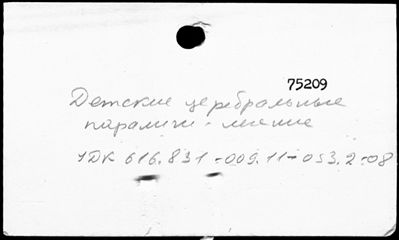 75209
Детские церебральные
параличи - лечение
УДК 616.831-009.11-053.2-08